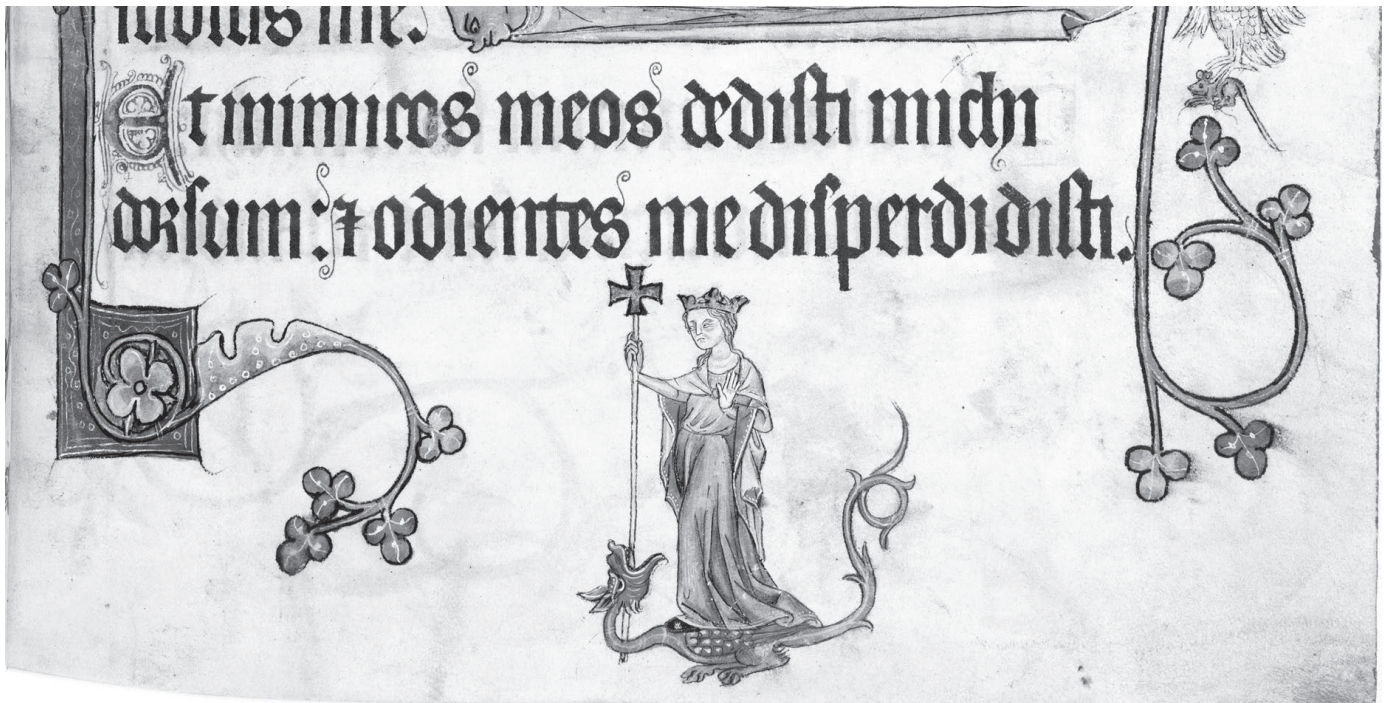 subtus me.
Et inimicos meos dedisti michi
dorsum: ⁊ odientes me disperdidisti.